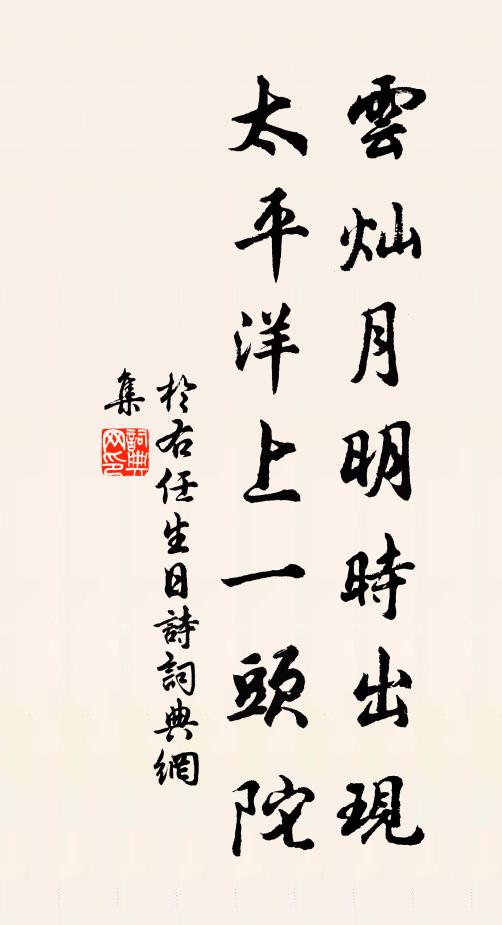 雲灿月明時出現
太平洋上一頭陀
於右任生日詩詞典網
集
詞典网印